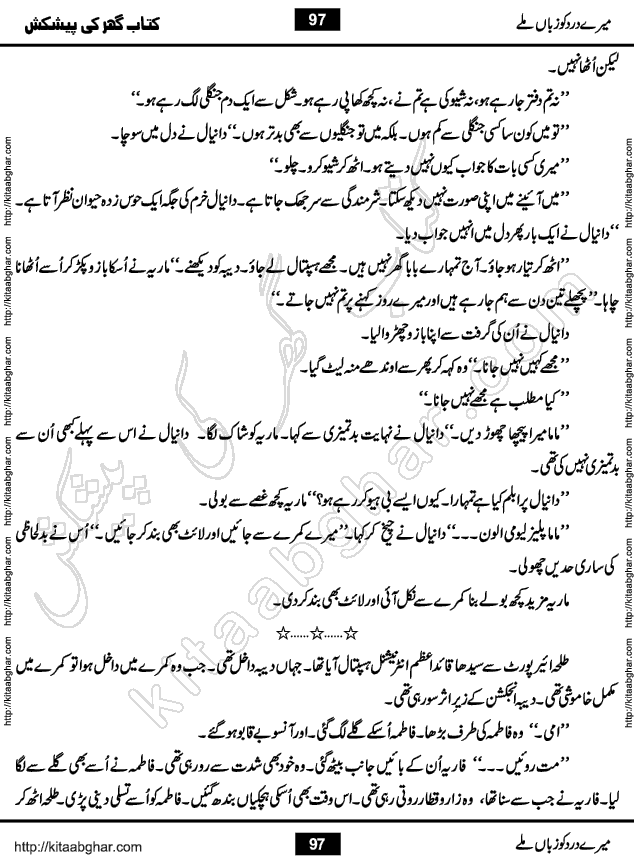 کتاب گھر کی پیشکش 97 میرے درد کو زباں ملے
لیکن اُٹھا نہیں۔
’’نہ تم دفتر جا رہے ہو، نہ شیو کی ہے تم نے ، نہ کچھ کھا پی رہے ہو۔ شکل سے ایک دم جنگلی لگ رہے ہو۔‘‘
’’تو میں کون سا کسی جنگلی سے کم ہوں۔ بلکہ میں تو جنگلیوں سے بھی بدتر ہوں۔‘‘ دانیال نے دل میں سوچا۔
’’میری کسی بات کا جواب کیوں نہیں دیتے ہو۔ اٹھ کر شیو کرو۔ چلو۔‘‘
’’میں آئینے میں اپنی صورت نہیں دیکھ سکتا۔ شرمندگی سے سر جھک جاتا ہے۔ دانیال خرم کی جگہ ایک ہوس زدہ حیوان نظر آتا ہے۔
‘‘ دانیال نے ایک بار پھر دل میں انہیں جواب دیا۔
’’اٹھ کر تیار ہو جاؤ۔ آج تمہارے بابا گھر نہیں ہیں۔ مجھے ہسپتال لے جاؤ۔ دیبہ کو دیکھنے۔‘‘ ماریہ نے اُسکا بازو پکڑ کر اُسے اٹھانا
چاہا۔ ’’پچھلے تین دن سے ہم جا رہے ہیں اور میرے روز کہنے پر تم نہیں جاتے۔‘‘
دانیال نے اُن کی گرفت سے اپنا بازو چھڑوا لیا۔
’’مجھے کہیں نہیں جانا۔‘‘ وہ کہہ کر پھر سے اوندھے منہ لیٹ گیا۔
’’کیا مطلب ہے مجھے نہیں جانا۔‘‘
’’ماما میرا پیچھا چھوڑ دیں۔‘‘ دانیال نے نہایت بدتمیزی سے کہا۔ ماریہ کو شاک لگا۔ دانیال نے اس سے پہلے کبھی اُن سے
بدتمیزی نہیں کی تھی۔
’’دانیال پرابلم کیا ہے تمہارا۔ کیوں ایسے بی ہیو کر رہے ہو؟‘‘ ماریہ کچھ غصے سے بولی۔
’’ماما پلیز لیومی الون ۔۔۔‘‘ دانیال نے چیخ کر کہا۔ ’’میرے کمرے سے جائیں اور لائٹ بھی بند کر جائیں۔‘‘ اُس نے بدلحاظی
کی ساری حدیں چھو لی۔
ماریہ مزید کچھ بولے بنا کمرے سے نکل آئی اور لائٹ بھی بند کر دی۔
☆......☆......☆
طلحہ ائیر پورٹ سے سیدھا قائد اعظم انٹرنیشنل ہسپتال آیا تھا۔ جہاں دیبہ داخل تھی۔ جب وہ کمرے میں داخل ہوا تو کمرے میں
مکمل خاموشی تھی۔ دیبہ انجکشن کے زیرِ اثر سو رہی تھی۔
’’امی۔‘‘ وہ فاطمہ کی طرف بڑھا۔ فاطمہ اُسکے گلے لگ گئی۔ اور آنسو بے قابو ہو گئے۔
’’مت روئیں ۔۔۔‘‘ فاریہ اُن کے بائیں جانب بیٹھ گئی۔ وہ خود بھی شدت سے رو رہی تھی۔ فاطمہ نے اُسے بھی گلے سے لگا
لیا۔ فاریہ نے جب سے سنا تھا، وہ زار و قطار روتی رہی تھی۔ اس وقت بھی اُسکی ہچکیاں بندھ گئیں۔ فاطمہ کو اُسے تسلی دینی پڑی۔ طلحہ اٹھ کر
http://kitaabghar.com 97 میرے درد کو زباں ملے
http://kitaabghar.com http://kitaabghar.com http://kitaabghar.com http://kitaabghar.com http://kitaabghar.com http://kitaabghar.com
http://kitaabghar.com http://kitaabghar.com http://kitaabghar.com http://kitaabghar.com http://kitaabghar.com http://kitaabghar.com
کتاب گھر کی پیشکش
kitaabghar.com